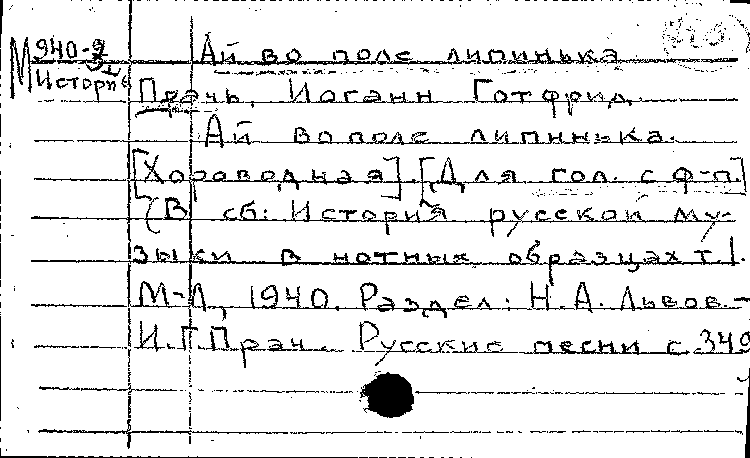 М 940-2/I Ай во поле липинька
Истори
Прачь, Иоганн Готфрид.
Ай во поле липинька.
[Хороводная]. [Для гол. с ф-п.]
{В сб: История русской му-
зыки в нотных образцах т. I.
М-Л, 1940. Раздел: Н.А. Львов. -
И.Г. Прач. Русские песни с. 349